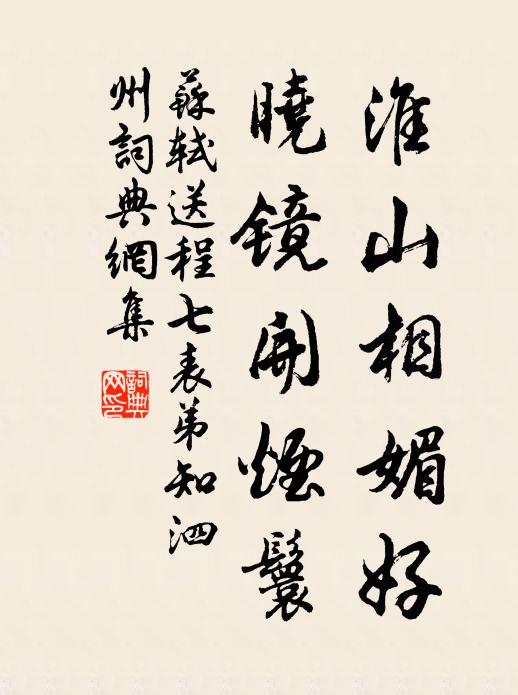 淮山相媚好
曉鏡開煙鬟
蘇軾送程七表弟知泗
州詞典網集
詞典
网印